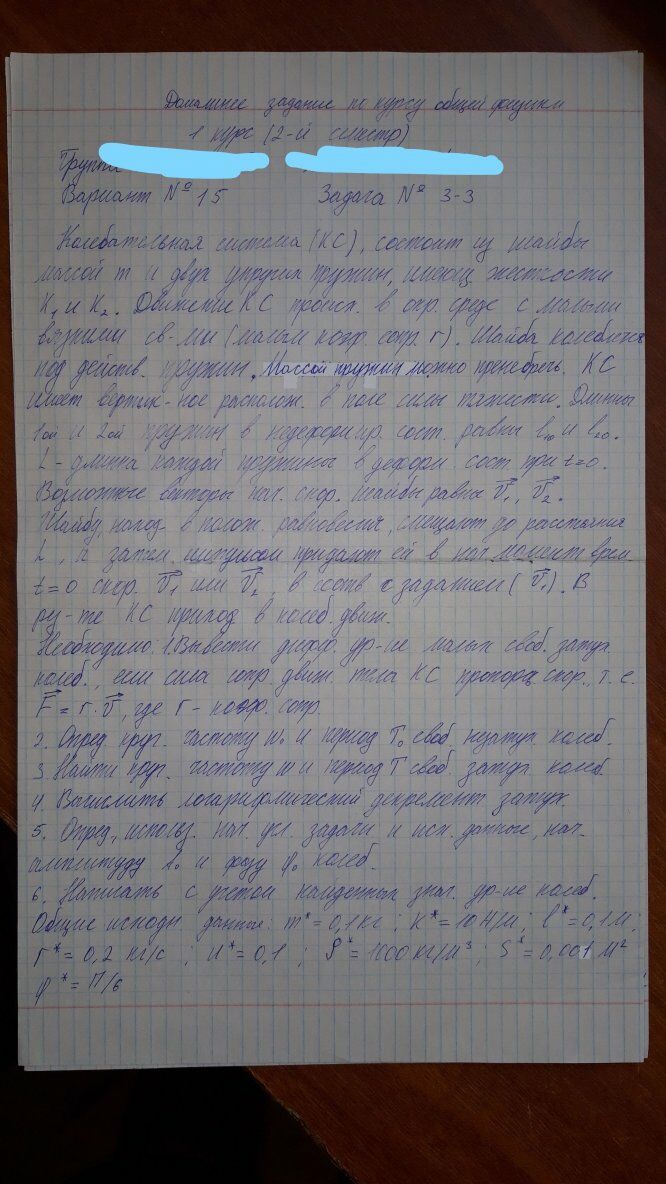 Домашнее задание по курсу общей физики
1 курс (2-й семестр)
Группа
Вариант № 15 Задача № 3-3
Колебательная система (КС), состоит из шайбы
массой m и двух упругих пружин, имеющ. жесткости
K₁ и K₂. Движение КС происх. в опр. среде с малыми
вязкими св-ми (малым коэф. сопр. r). Шайба колеблется
под действ. пружин. Массой пружин можно пренебречь. КС
имеет вертик-ное располож. в поле силы тяжести. Длинны
1ой и 2ой пружин в недеформир. сост. равны l₁₀ и l₂₀.
L - длинна каждой пружины в деформ. сост. при t=0.
Возможные векторы нач. скор. шайбы равны v⃗₁, v⃗₂.
Шайбу, наход. в полож. равновесия, смещают до расстояния
L, а затем импульсом придают ей в нач. момент врем.
t=0 скор. v⃗₁ или v⃗₂, в соотв. с заданием (v⃗₁). В
ру-те КС приход. в колеб. движ.
Необходимо: 1. Вывести дифф. ур-ие малых своб. затух.
колеб., если сила сопр. движ. тела КС пропорц. скор., т. е.
F⃗ = r·v⃗, где r - коэф. сопр.
2. Опред. круг. частоту w₀ и период T₀ своб. незатух. колеб.
3. Найти круг. частоту w и период T своб. затух. колеб.
4. Вычислить логарифмический декремент затух.
5. Опред., использ. нач. усл. задачи и исх. данные, нач.
амплитуду A₀ и фазу φ₀ колеб.
6. Написать с учетом найденных знач. ур-ие колеб.
Общие исходн. данные: m* = 0,1 кг; K* = 10 Н/м; l* = 0,1 м;
r* = 0,2 кг/с; u* = 0,1; ρ* = 1000 кг/м³; S* = 0,001 м²
φ* = П/6